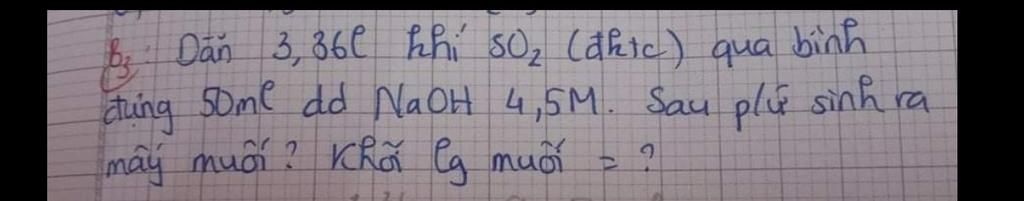 B3: Dẫn 3,36l khí SO2 (đktc) qua bình
đựng 50ml dd NaOH 4,5M. Sau p/ứ sinh ra
mấy muối? Khối lg muối = ?